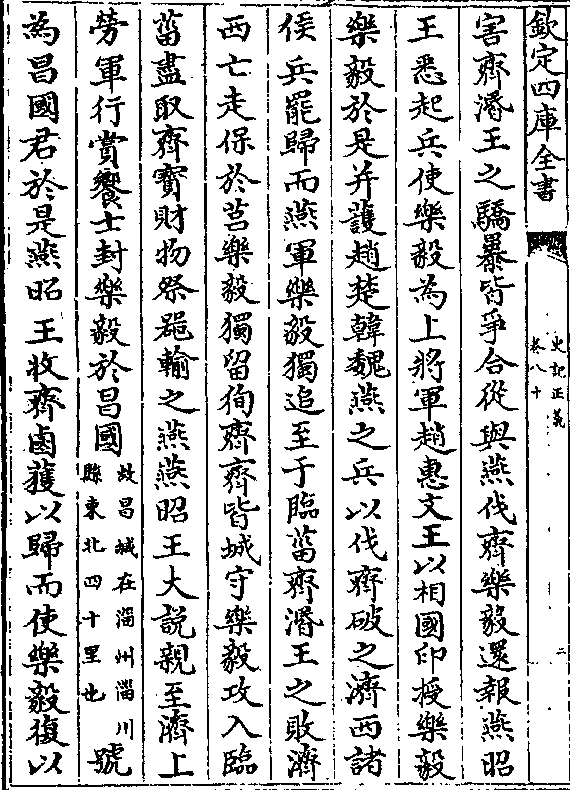 欽定四庫全書
史記正義
卷八十
二
害齊湣王之驕暴皆爭合從與燕伐齊樂毅還報燕昭
王悉起兵使樂毅為上將軍趙惠文王以相國印授樂毅
樂毅於是并護趙楚韓魏燕之兵以伐齊破之濟西諸
侯兵罷歸而燕軍樂毅獨追至于臨菑齊湣王之敗濟
西亡走保於莒樂毅獨留徇齊齊皆城守樂毅攻入臨
菑盡取齊寳財物祭噐輸之燕燕昭王大說親至濟上
勞軍行賞饗士封樂毅於昌國故昌城在淄州淄川縣東北四十里也號
為昌國君於是燕昭王收齊鹵獲以歸而使樂毅復以